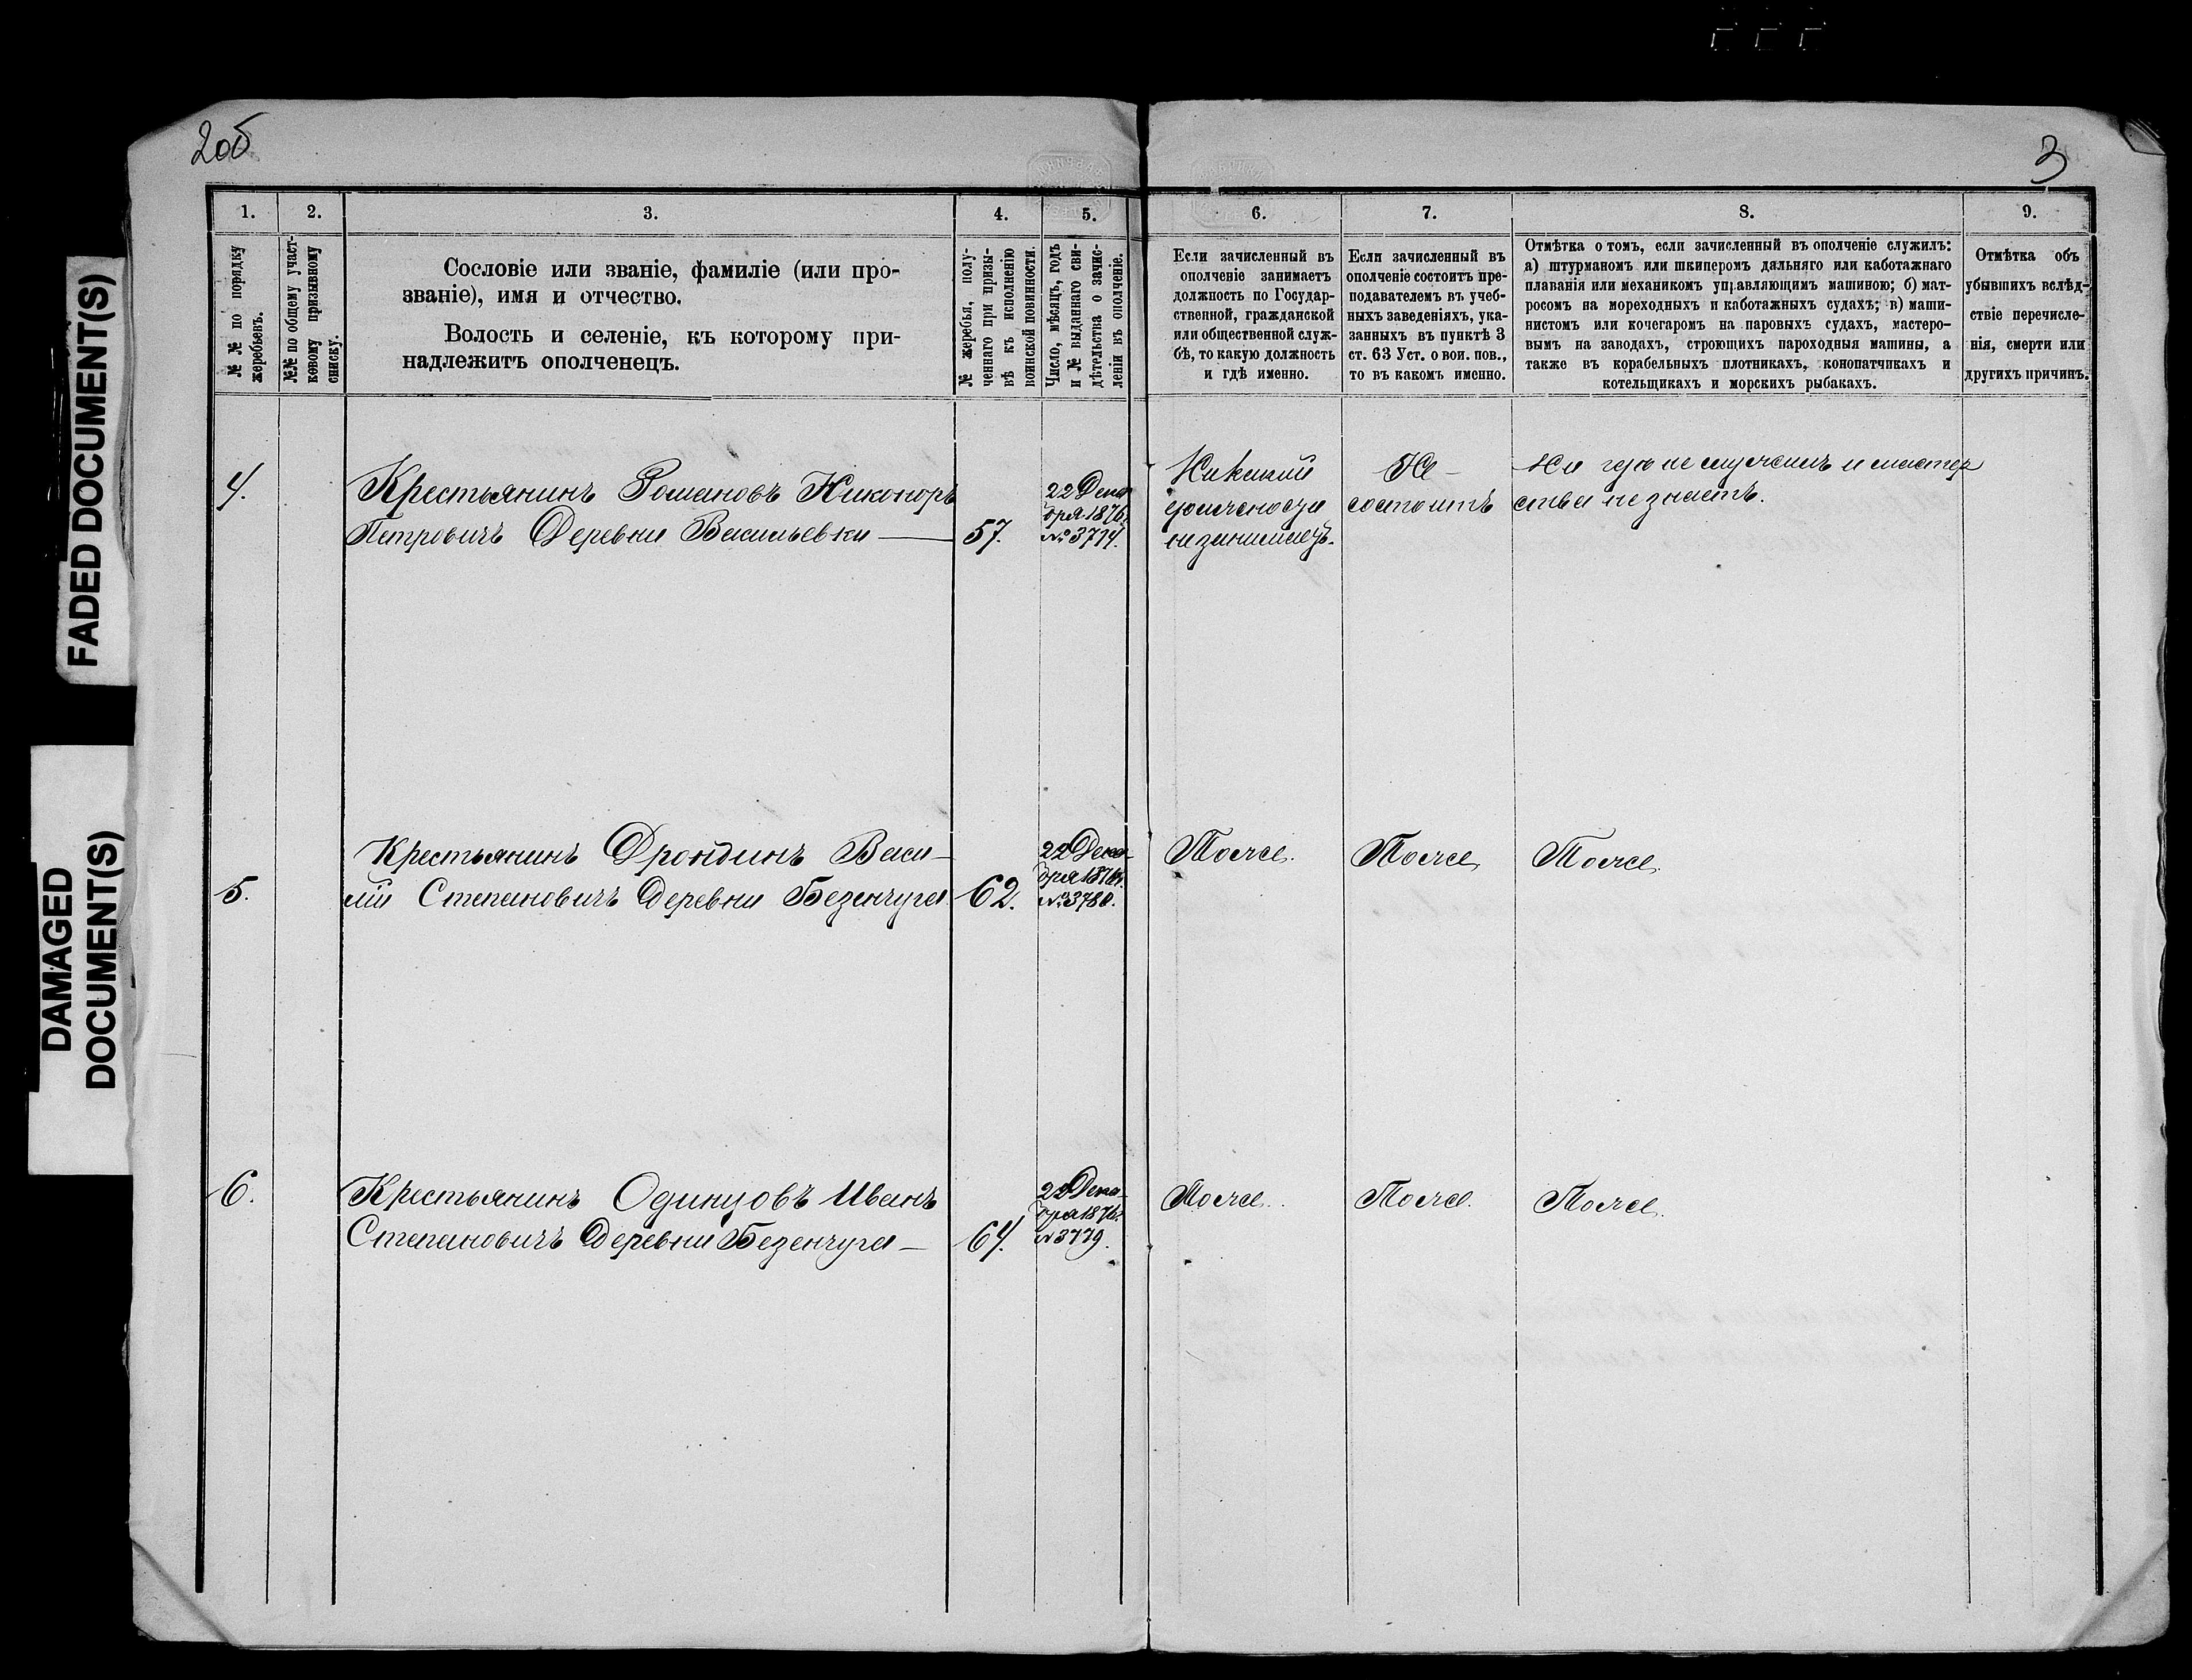 2об
3
1.
2.
3.
4.
5.
6.
7.
8.
9.
№ № по порядку
жеребьевъ.
№№ по общему участ-
ковому призывному
списку.
Сословіе или званіе, фамиліе (или про-
званіе), имя и отчество.
Волость и селеніе, къ которому при-
надлежитъ ополченецъ.
№ жеребья, полу-
ченнаго при призы-
вѣ къ исполненію
воинской повинности.
Число, мѣсяцъ, годъ
и № выданнаго сви-
дѣтельства о зачис-
леніи въ ополченіе.
Если зачисленный въ
ополченіе занимаетъ
должность по Государ-
ственной, гражданской
или общественной служ-
бѣ, то какую должность
и гдѣ именно.
Если зачисленный въ
ополченіе состоитъ пре-
подавателемъ въ учеб-
ныхъ заведеніяхъ, ука-
занныхъ въ пунктѣ 3
ст. 63 Уст. о вои. пов.,
то въ какомъ именно.
Отмѣтка о томъ, если зачисленный въ ополченіе служилъ:
а) штурманомъ или шкиперомъ дальняго или каботажнаго
плаванія или механикомъ управляющимъ машиною; б) мат-
росомъ на мореходныхъ и каботажныхъ судахъ; в) маши-
нистомъ или кочегаромъ на паровыхъ судахъ, мастеро-
вымъ на заводахъ, строющихъ пароходныя машины, а
также въ корабельныхъ плотникахъ, конопатчикахъ и
котельщикахъ и морскихъ рыбакахъ.
Отмѣтка объ
убывшихъ вслѣд-
ствіе перечисле-
нія, смерти или
другихъ причинъ.
4.
Крестьянинъ Романовъ Никоноръ
Петровичъ Деревни Васильевки —
57.
22 Дека
бря 1876
№ 3774.
Никакой
должности
не занимаетъ.
Не —
состоитъ
Ни гдѣ не служилъ и мастер
ства не знаетъ.
5.
Крестьянинъ Дрондинъ Васи-
лій Степановичъ Деревни Безенчуга
62.
22 Дека-
бря 1876г.
№ 3780.
Тоже.
Тоже
Тоже.
6.
Крестьянинъ Одинцовъ Иванъ
Степановичъ Деревни Безенчуга —
64.
22 Дека-
бря 1876г.
№ 3779.
Тоже.
Тоже.
Тоже.
FADED DOCUMENT(S)
DAMAGED
DOCUMENT(S)